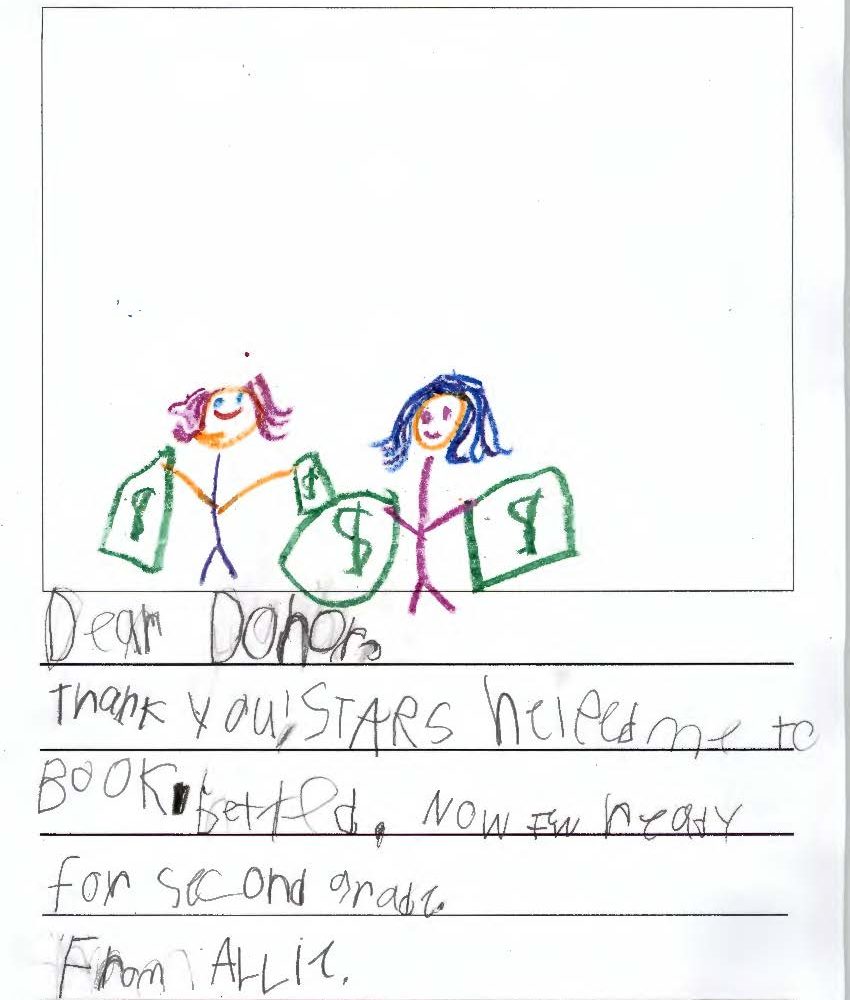 $ $ $ $
Dear Donor,
Thank you! STARS helped me to
BOOK better. NOW IM ready
for second grade.
From ALLIE.